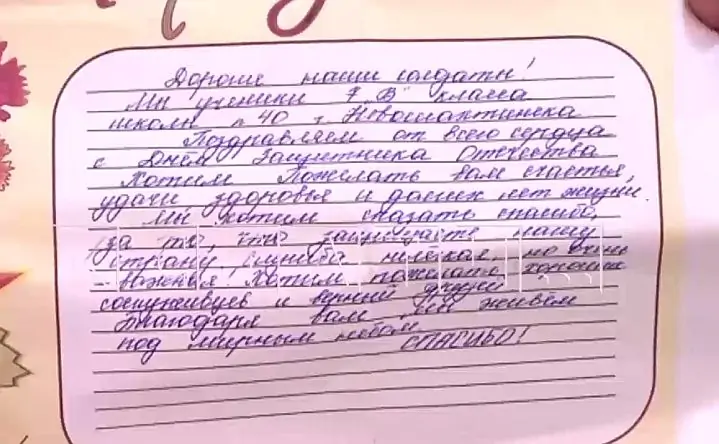 Дорогие наши солдаты!
Мы ученики 7 "В" класса
школы №40 г. Новошахтинска
Поздравляем от всего сердца
с Днём Защитника Отечества
Хотим Пожелать вам счастья,
удачи здоровья и долгих лет жизни.
Мы хотим сказать спасибо,
за то, что защищаете нашу
страну служба нелёгкая, но очень
важная! Хотим пожелать хороших
сослуживцев и верных друзей
Благодаря вам мы живём
под мирным небом.
СПАСИБО!